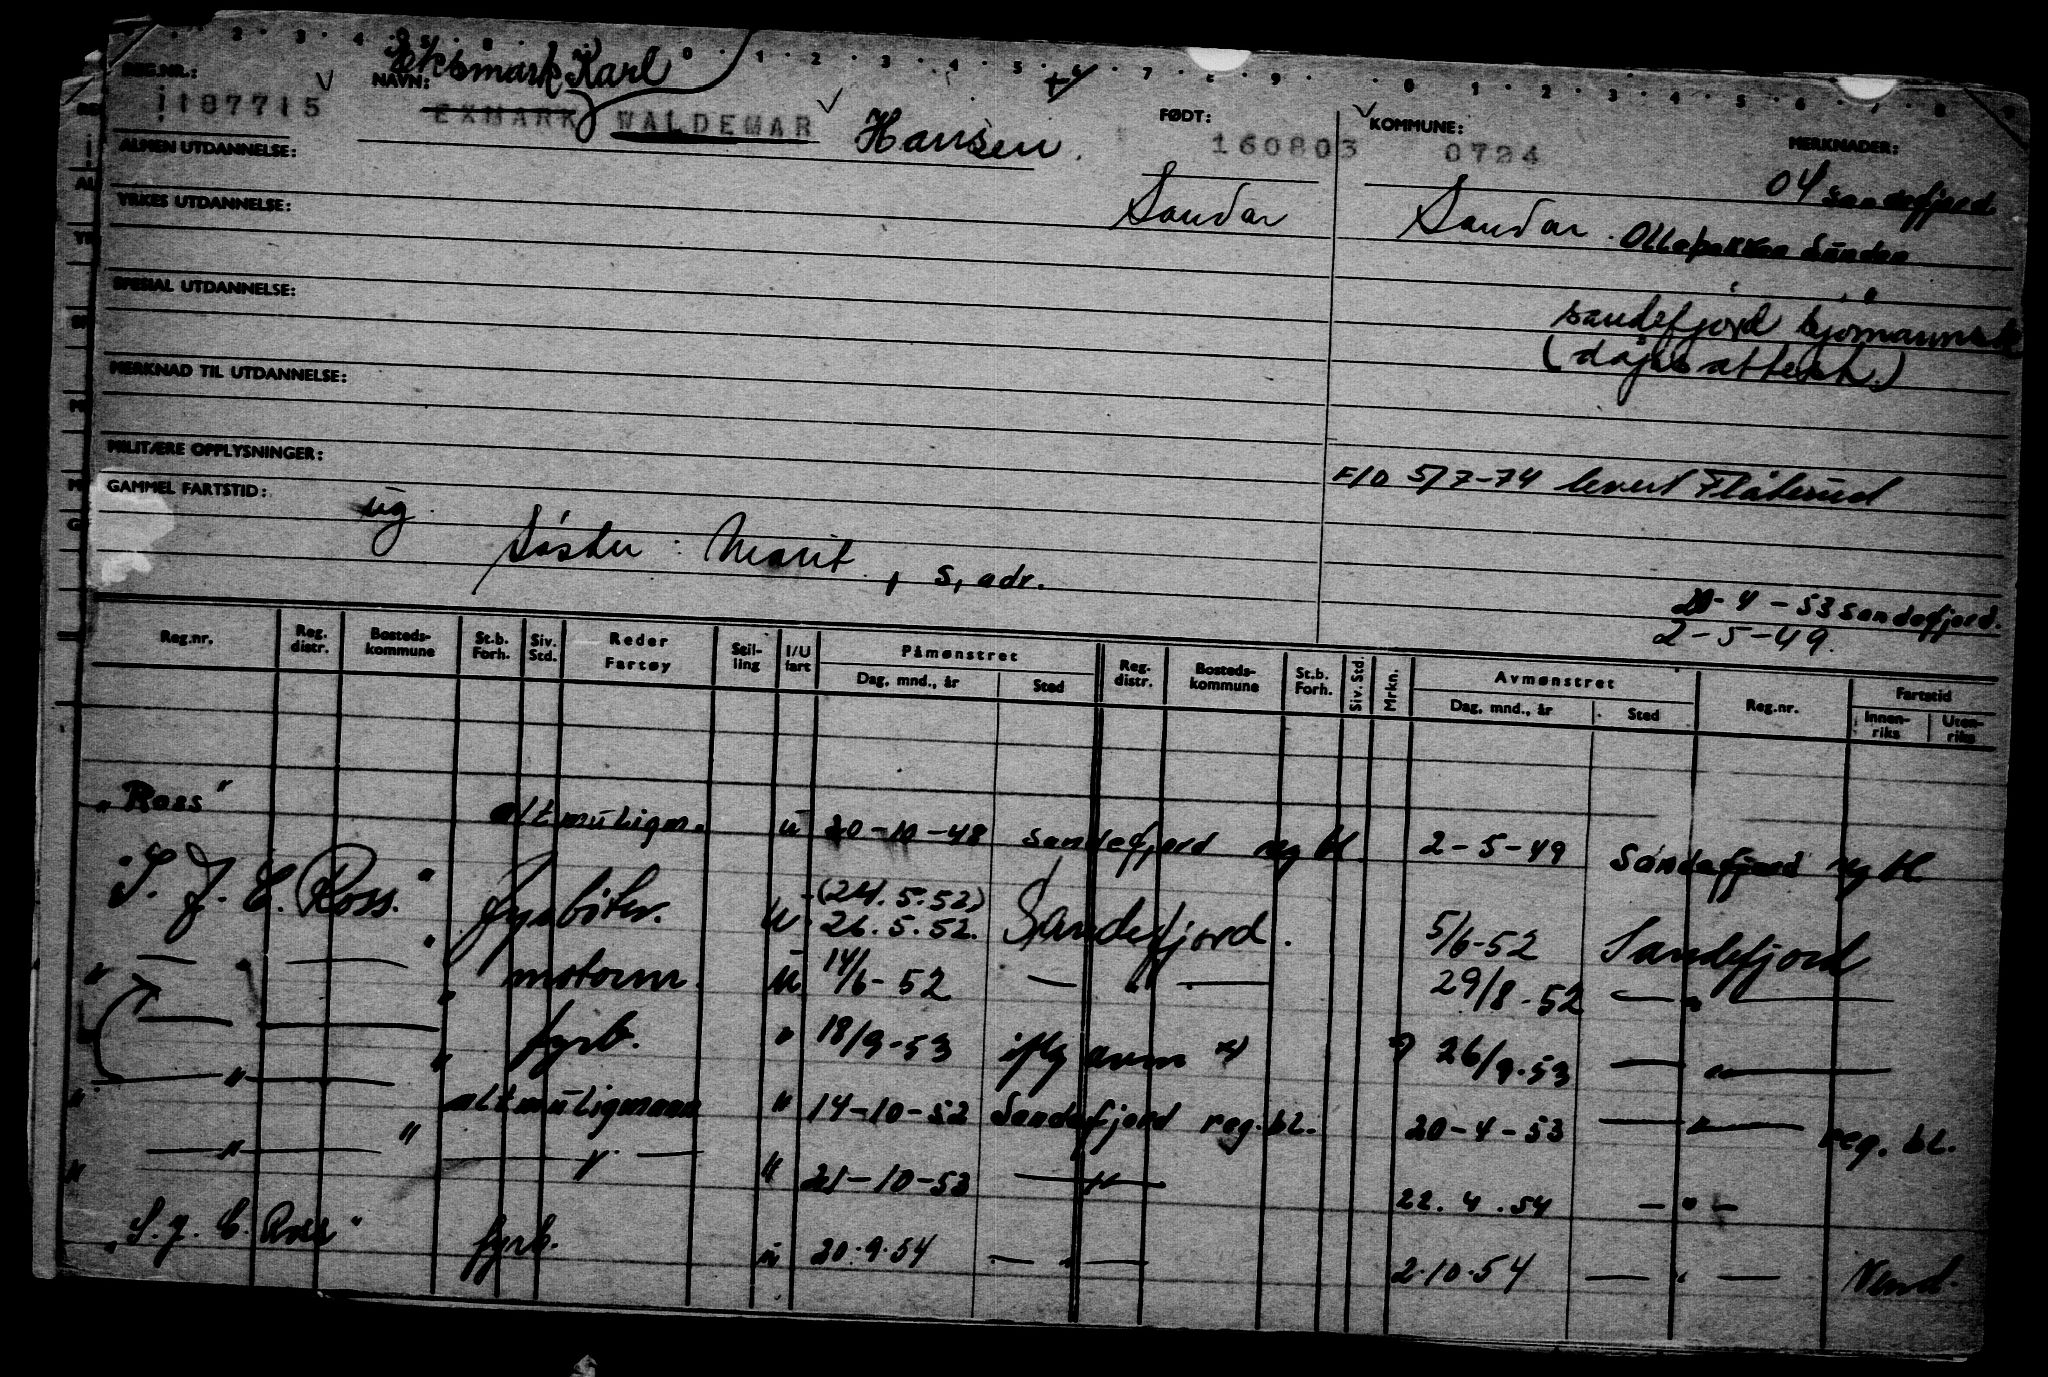 REG.NR.: NAVN: Eksmark Karl FØDT: KOMMUNE: MERKNADER:
1187715 EXMARK WALDEMAR Hansen. 160803 0724
04 Sandefjord.
ALMEN UTDANNELSE:
Sandar Sandar. Ollebakken Sanden
YRKES UTDANNELSE:
SPESIAL UTDANNELSE:
Sandefjord Sjømannsk
(dajls attest.)
MERKNAD TIL UTDANNELSE:
MILITÆRE OPPLYSNINGER:
F/O 5/7-74 levert Flåterud
GAMMEL FARTSTID:
ug.
Søster: Marit, s, adr.
20-4-53 Sandefjord.
2-5-49.
Reg.nr. Reg. distr. Bosteds-kommune St.b. Forh. Siv. Std. Reder Fartøy Stil-ling I/U fart Påmønstret Dag, mnd., år Sted Reg. distr. Bosteds-kommune St.b. Forh. Siv. Std. Mrkn. Avmønstret Dag, mnd., år Sted Reg.nr. Fartstid Innen-riks Uten-riks
"Ross" altmuligm. u 20-10-48 Sandefjord rg bl. 2-5-49 Sandefjord rg bl.
"S. J. E. Ross." fyrbøter. u (24.5.52) 26.5.52. Sandefjord. 5/6-52 Sandefjord
" — " — " motorm. u 14/6-52 — " — 29/8-52 — " —
" — — " fyrb. " 18/9-53 iflg avm 26/9-53 — " —
" — " — " altmuligmann " 14-10-52 Sandefjord reg.bl. 20-4-53 — " — reg. bl.
" — " — " — " — " 21-10-53 — " — 22.4.54 — " —
"S. J. E. Ross" fyrb. u 20.9.54 — " — 2.10.54 — " —